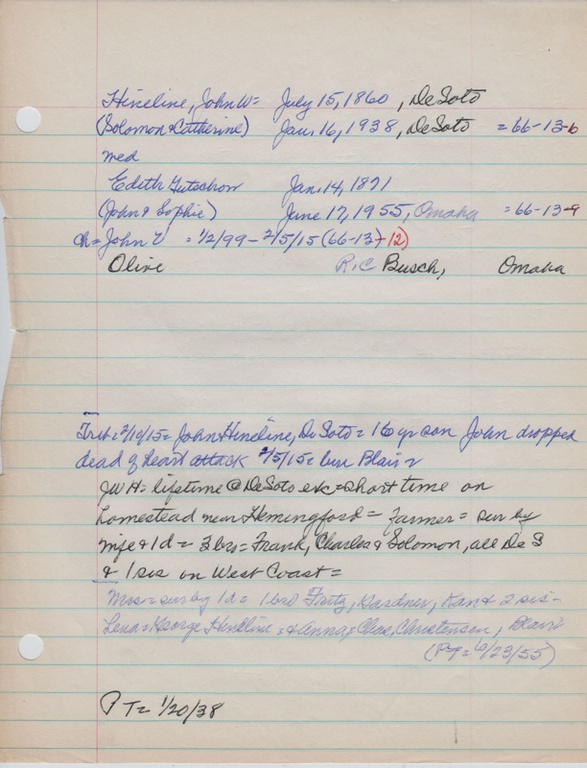 Hineline, John W = July 15, 1860, DeSoto
(Solomon & Catherine) Jan. 16, 1938, DeSoto = 66-13-6
med
Edith Gutschow Jan. 14, 1871
(John & Sophie) June 17, 1955, Omaha = 66-13-9
Ch = John V = 1/2/99 - 2/5/15 (66-13-12)
Olive R.C Busch, Omaha
Trib = 2/10/15 = John Hineline, De Soto = 16 yr son John dropped
dead of heart attack 2/5/15 = bur Blair =
JWH = lifetime @ DeSoto exc = short time on
homestead near Hemingford = Farmer = sur by
wife & 1 d = 3 bros = Frank, Charles & Solomon, all De S
& 1 sis on West Coast =
Mrs = sur by 1 d = 1 bro Fritz, Gardner, Kan & 2 sis -
Lena = George Hineline = & Anna = Chas. Christensen, Blair
(PT = 6/23/55)
PT = 1/20/38